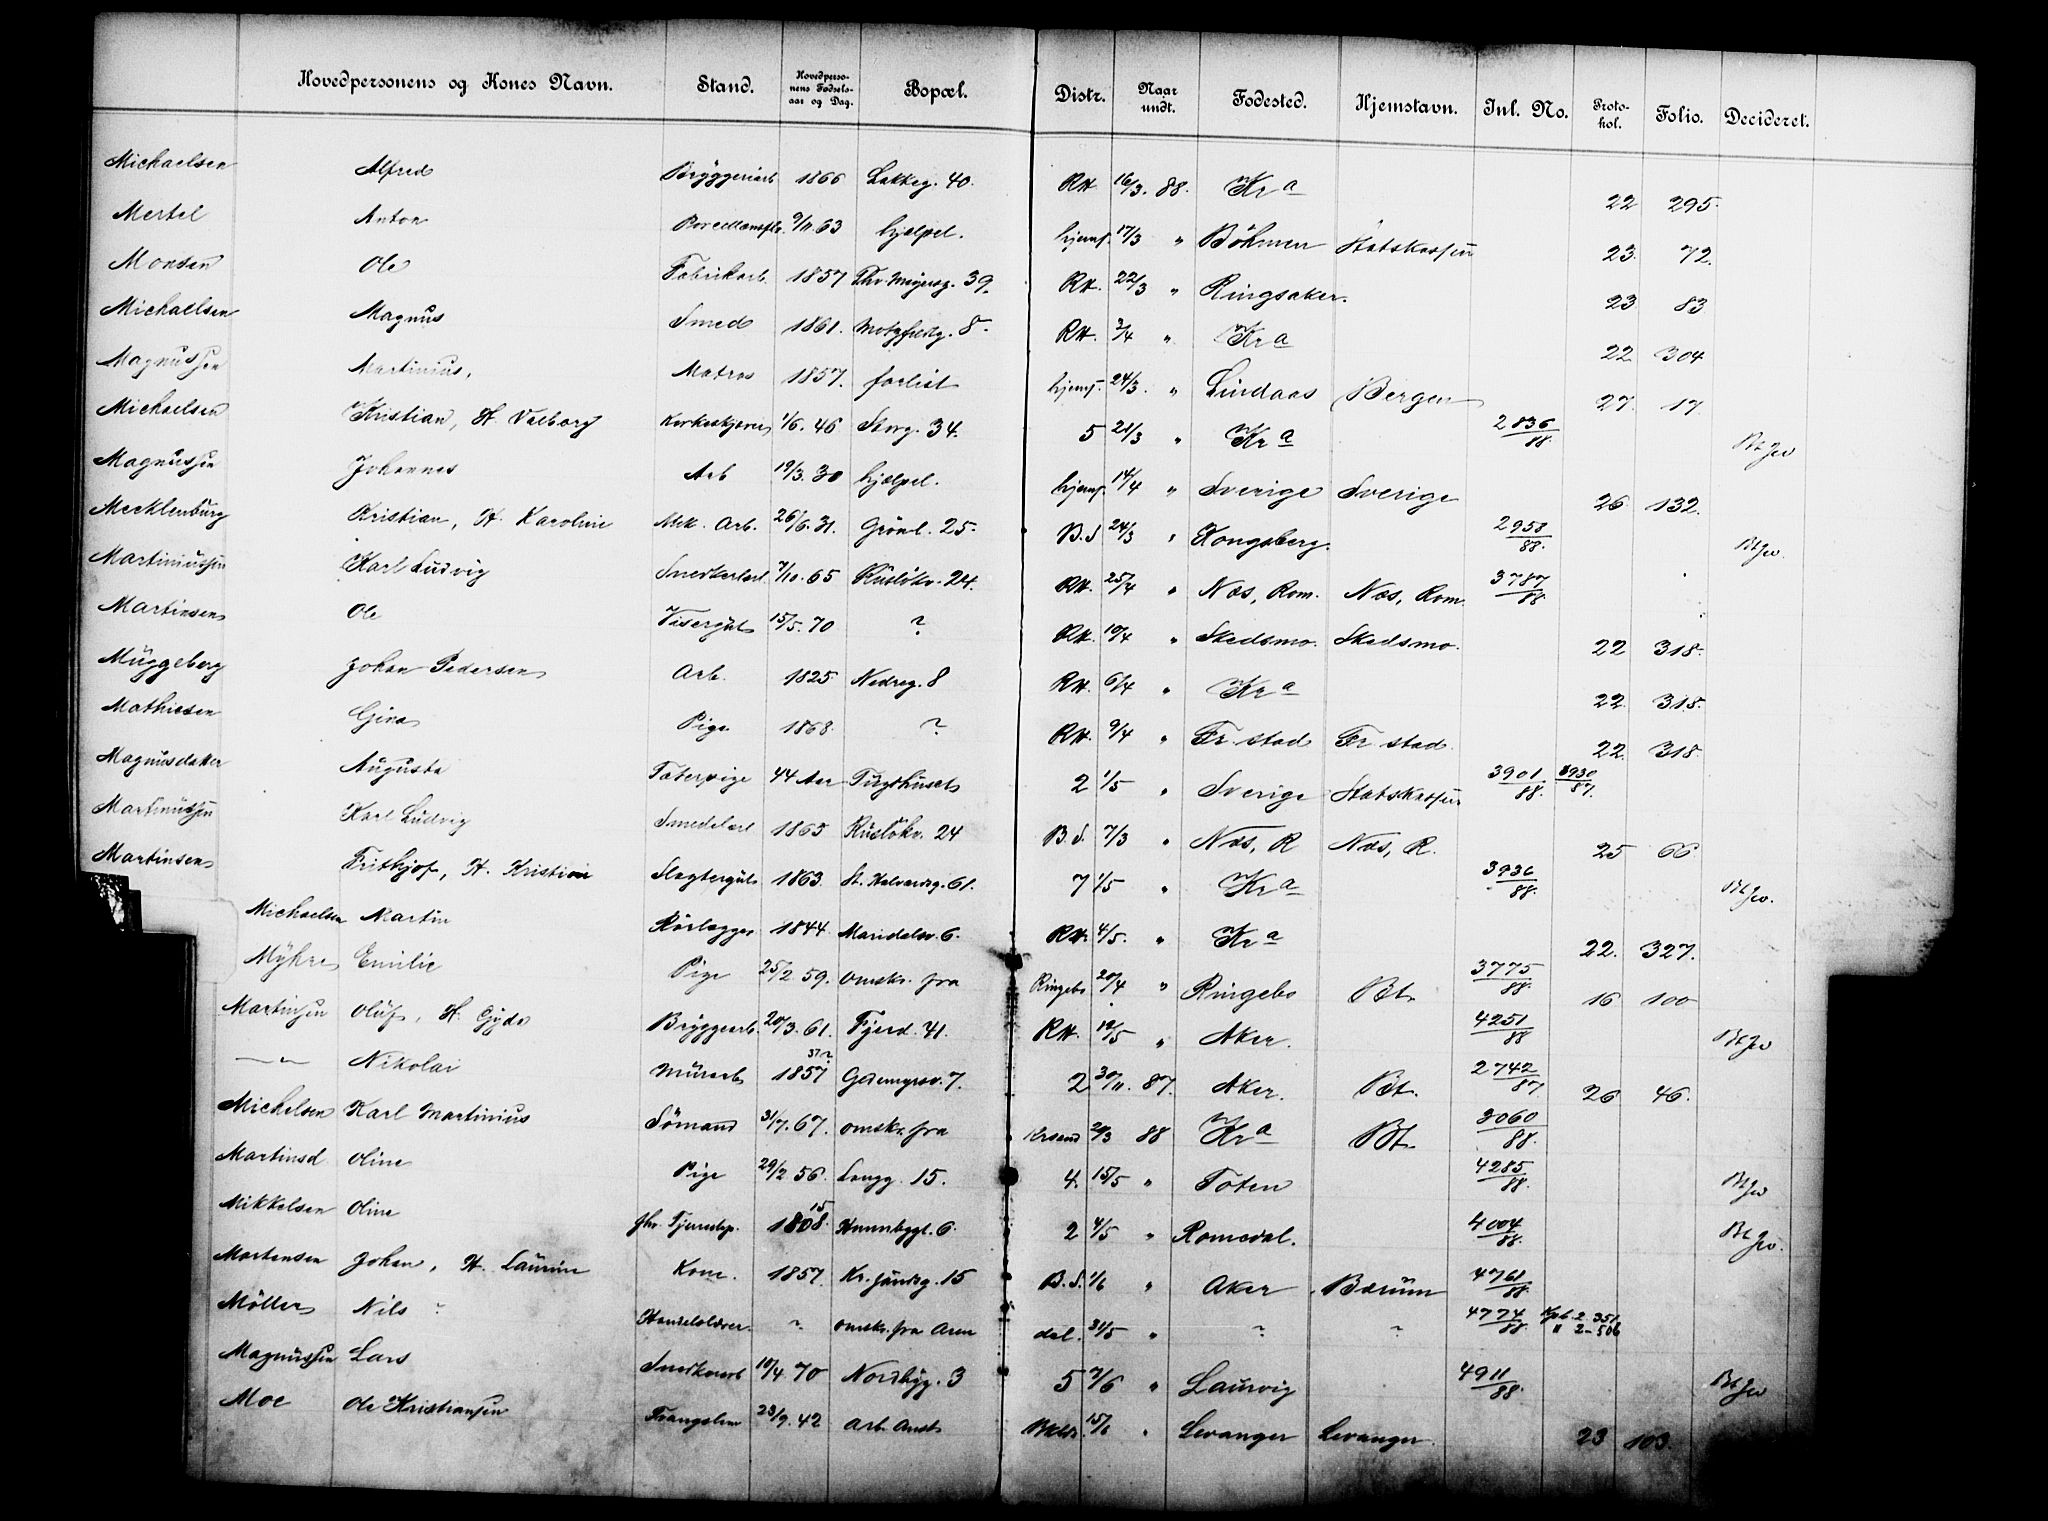 Hovedpersonens og Kones Navn. Stand. Hovedpersonens Fødselsaar og Dag. Bopæl. Distr. Naar undt. Fødested. Hjemstavn. Inl. No. Protokol. Folio. Decideret.
Michaelsen Alfred Bryggeriarb 1866 Lakkeg. 40. Rtt 16/3. 88. Kra 22 295.
Mertel Anton 9/11. 63 hjælpel. hjemf. 17/3 " Böhmen Statskassen 23. 72.
Monsen Ole Fabrikarb. 1857 Thv. Meyersg. 39. Rtt. 22/3 " Ringsaker. 23 83
Michaelsen Magnus Smed 1861. Motzfeldtg. 8. Rtt. 3/4 " Kra 22 304
Magnussen Martinius, Matros 1857. forlist hjemf. 24/3. " Lindaas Bergen 27. 17.
Michaelsen Kristian, H. Valborg 1/6. 46 Storg. 34. 5 21/3 " Kra 2836/88. Bt Jev
Magnussen Johannes Arb 19/3. 30 hjælpel. hjemf. 14/4 " Sverige Sverige 26 132.
Mecklenburg Kristian, H. Karoline Mek. Arb. 26/6. 31. Grönl. 25. B.S 24/3 " Kongsberg. 2958/88. Bt Jev.
Martiniussen Karl Ludvig Snedkerlærl 7/10. 65 Ruslökv. 24. Rtt. 25/4 " Næs, Rom. Næs, Rom. 3787/88
Martinsen Ole Visergut 15/5. 70 ? Rtt. 10/4 " Skedsmo. Skedsmo. 22 318.
Müggeberg Johan Pedersen Arb. 1825. Nedreg. 8 Rtt. 6/4 " Kra 22. 315.
Mathiesen Gina Pige 1868. ? Rtt. 9/4 " Fr. stad Fr. stad. 22. 318.
Magnusdatter Augusta Taterpige 44 Aar Tugthuset 2 1/5 " Sverige Statskassen 3901/88. 3930/87.
Martinussen Karl Ludvig Snedkelærl 1865 Ruslökv. 24 B.S. 7/3 " Næs, R Næs, R. 25 66
Martinsen Frithjof, H. Kristine Slagtergut 1863. St. Halvardsg. 61. 7 1/5 " Kra 3936/88. Bt Jev.
Michaelsen Martin Rörlægger 1844. Maridalsv. 6. Rtt. 4/5. " Kra 22. 327.
Myhre Emilie Pige 25/2 59. omskr. fra Ringebo 20/4 " Ringebo Bt. 3775/88. 16 100
Martinsen Oluf, H. Gyda Bryggearb. 20/3. 61. Fjerd. 41. Rtt. 12/5 " Aker. 4251/88 Bt Jev
— " — Nikolai Murarb 37? 1857 7. 2 30/11. 87. Aker. Bt. 2742/87. 26 46.
Michelsen Karl Martinius Sömand 31/7. 67. omskr. fra Krsand 20/3 88 Kra Bt. 3060/88.
Martinsd Oline Pige 29/2 56. Langg. 15. 4. 15/5 " Toten 4285/88. Bt Jev
Mikkelsen Oline fhv. Tjenestep. 15 1808. 6. 2 4/5 " Romsdal. 4004/88. Bt Jev.
Martensen Johan, H. Laurine Kone. 1857. 15 B.S. 1/6 " Aker Bærum 4761/88.
Möller Nils ? ? omskr. fra Aren dal. 31/5 " ? ? 4774/88 2-351 " 2-506
Magnussen Lars Snedkerarb 10/4. 70 Nordbyg. 3 5 7/6 " Laurvig 4911/88. Bt Jev
Moe Ole Kristiansen 23/9. 42 Arb. Anst 15/6 " Levanger Levanger. 23 103.